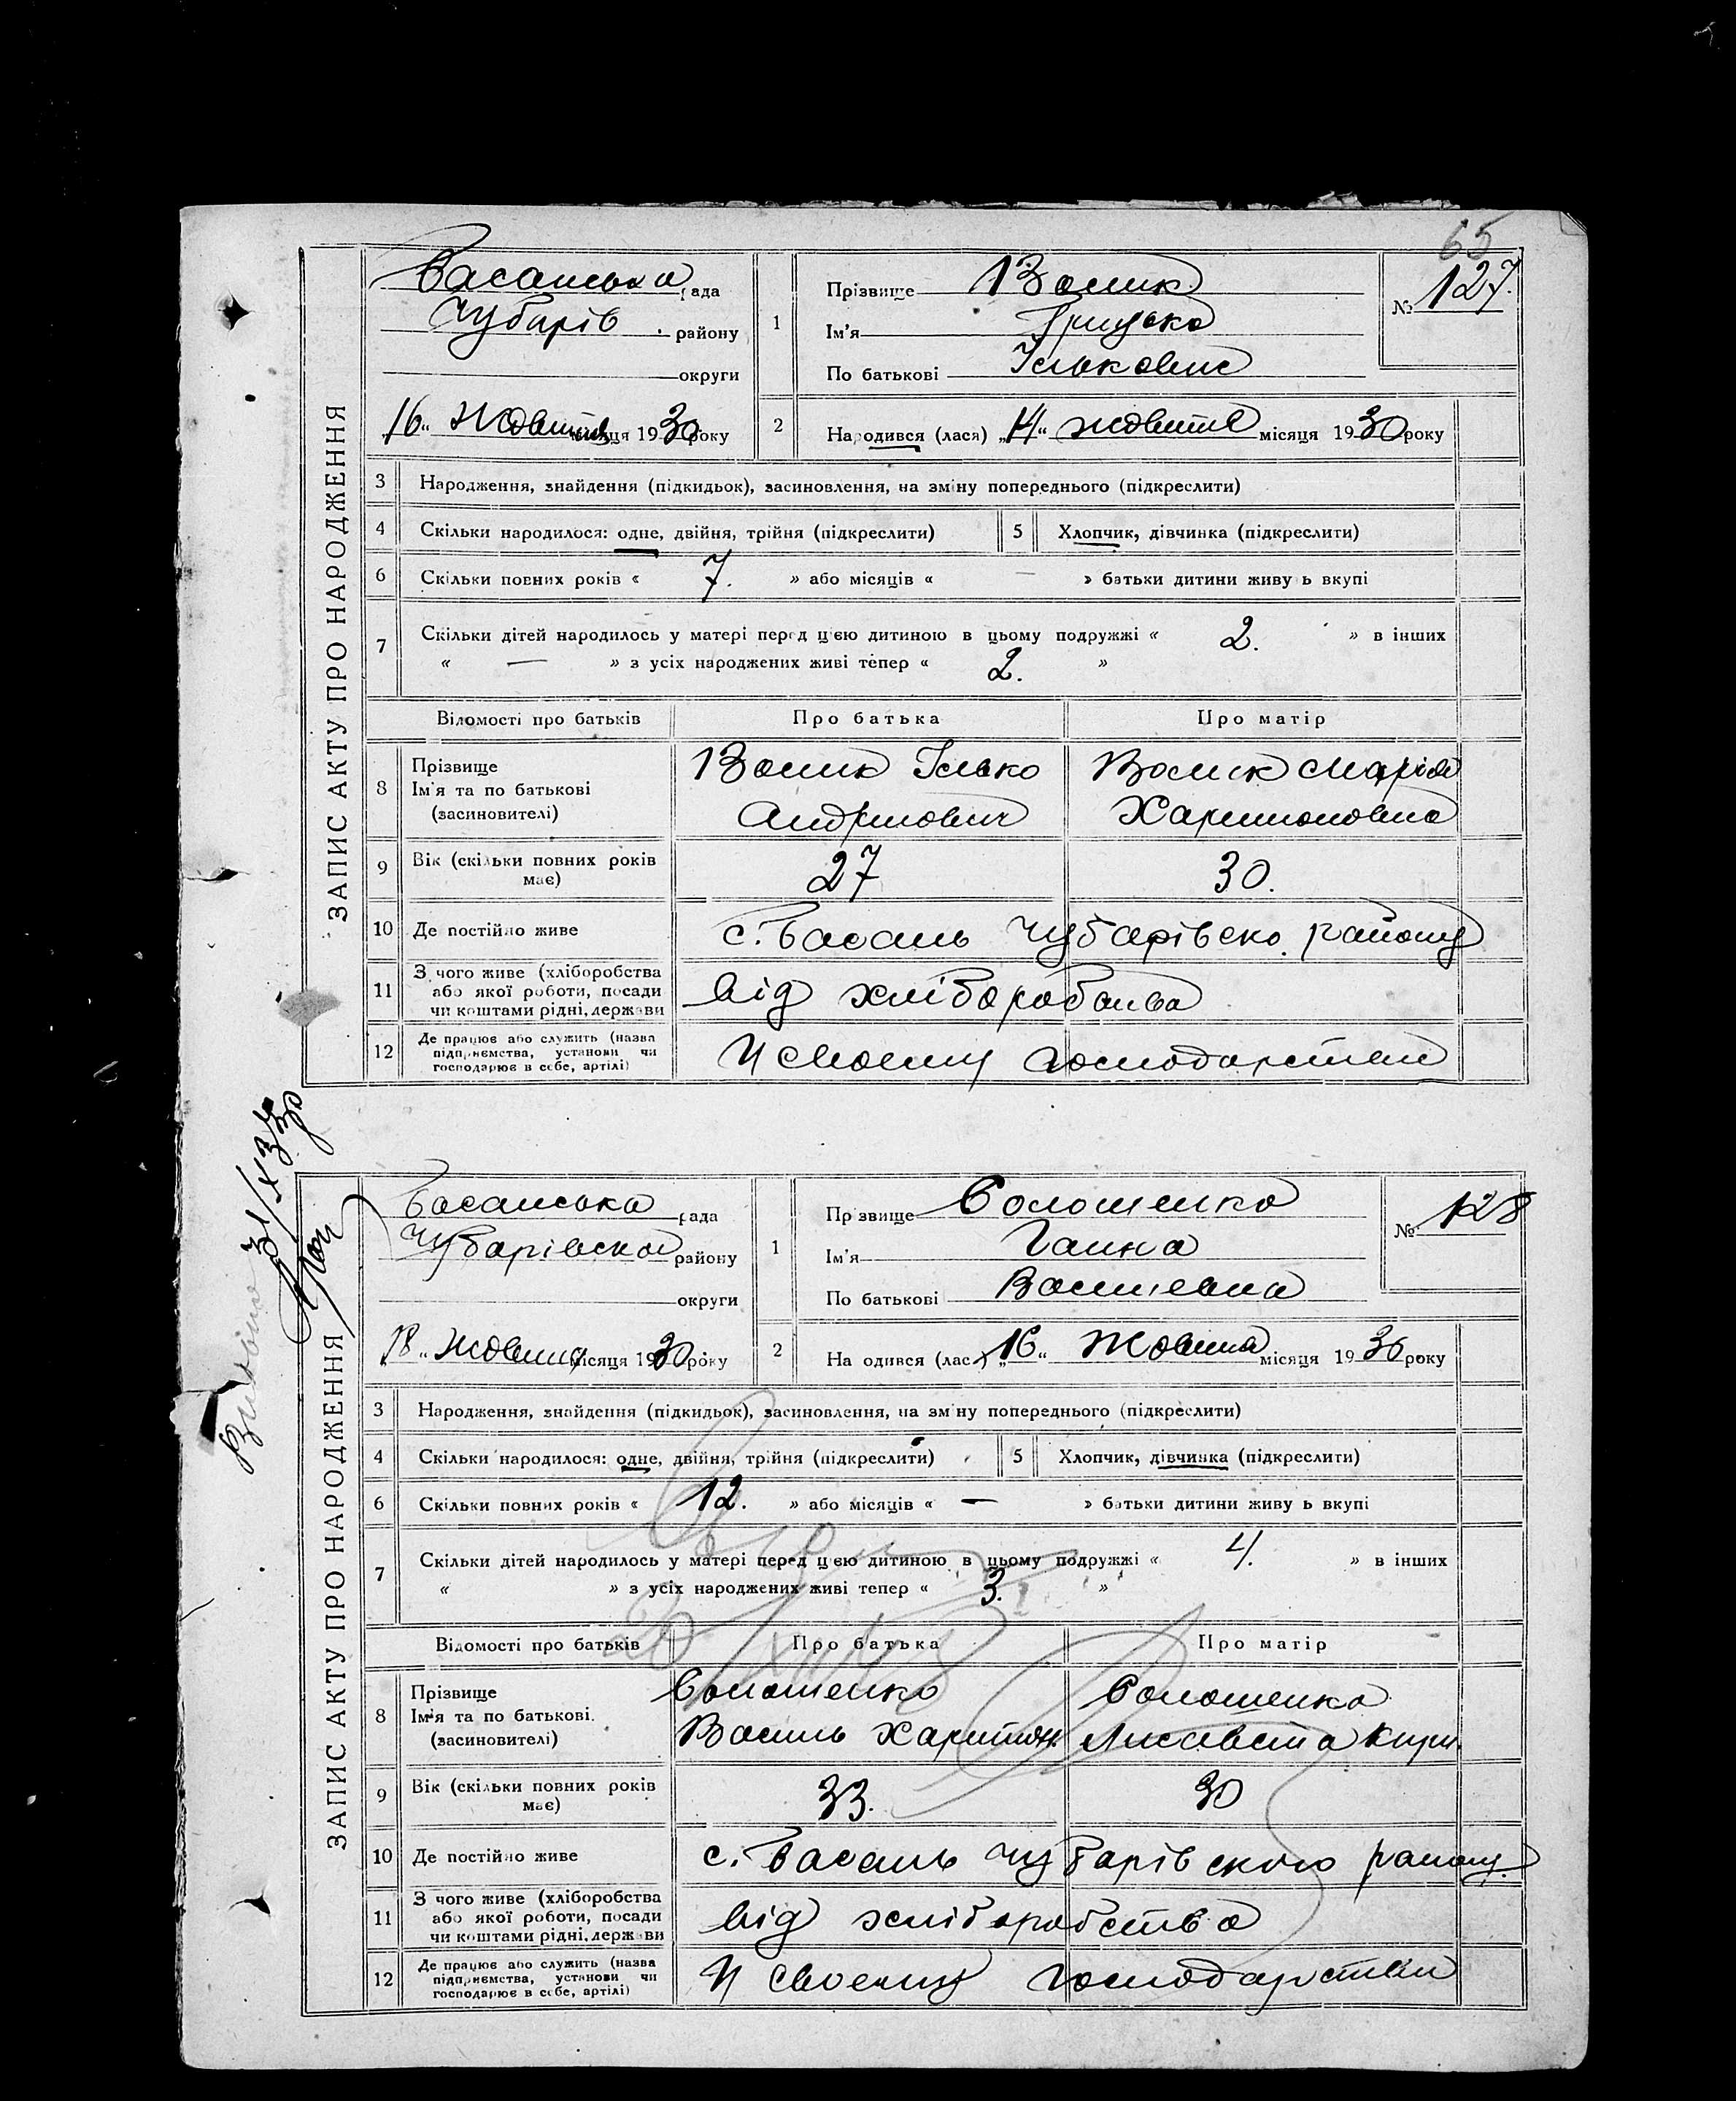 65
ЗАПИС АКТУ ПРО НАРОДЖЕННЯ
Басанська рада
Чубарів. району
округи
„16“ Жовтня місяця 1930 року
1
Прізвище Волик
Ім'я Грицько
По батькові Ількович
№ 127.
2
Народився (лася) „14“ жовтня місяця 1930 року
3 Народження, знайдення (підкидьок), засиновлення, на зміну попереднього (підкреслити)
4 Скільки народилося: одне, двійня, трійня (підкреслити) 5 Хлопчик, дівчинка (підкреслити)
6 Скільки повних років « 7. » або місяців « — » батьки дитини живуть вкупі
7 Скільки дітей народилось у матері перед цією дитиною в цьому подружжі « 2. » в інших
« — » з усіх народжених живі тепер « 2. »
Відомості про батьків Про батька Про матір
8 Прізвище
Ім'я та по батькові
(засиновителі)
Волик Ілько
Андрійович
Волик Марія
Харитоновна
9 Вік (скільки повних років
має)
27 30.
10 Де постійно живе с. Басань Чубарівско. району
11 З чого живе (хліборобства
або якої роботи, посади
чи коштами рідні, держави
від хліборобства
12 Де працює або служить (назва
підприємства, установи чи
господарює в себе, артілі)
У своєму господарстві
31/X 37р
ЗАПИС АКТУ ПРО НАРОДЖЕННЯ
Басанська рада
Чубарівсько району
округи
„18“ Жовтня місяця 1930 року
1
Прізвище Солошенко
Ім'я Ганна
По батькові Василевна
№ 128
2
Народився (лася) „16“ Жовтня місяця 1930 року
3 Народження, знайдення (підкидьок), засиновлення, на зміну попереднього (підкреслити)
4 Скільки народилося: одне, двійня, трійня (підкреслити) 5 Хлопчик, дівчинка (підкреслити)
6 Скільки повних років « 12. » або місяців « — » батьки дитини живуть вкупі
7 Скільки дітей народилось у матері перед цією дитиною в цьому подружжі « 4. » в інших
« » з усіх народжених живі тепер « 3. »
Відомості про батьків Про батька Про матір
8 Прізвище
Ім'я та по батькові
(засиновителі)
Солошенко
Василь Харитон.
Солошенко
Лисавета Кири.
9 Вік (скільки повних років
має)
33. 30
10 Де постійно живе с. Басань Чубарівского району.
11 З чого живе (хліборобства
або якої роботи, посади
чи коштами рідні, держави
від хліборобства
12 Де працює або служить (назва
підприємства, установи чи
господарює в себе, артілі)
У своєму господарстві